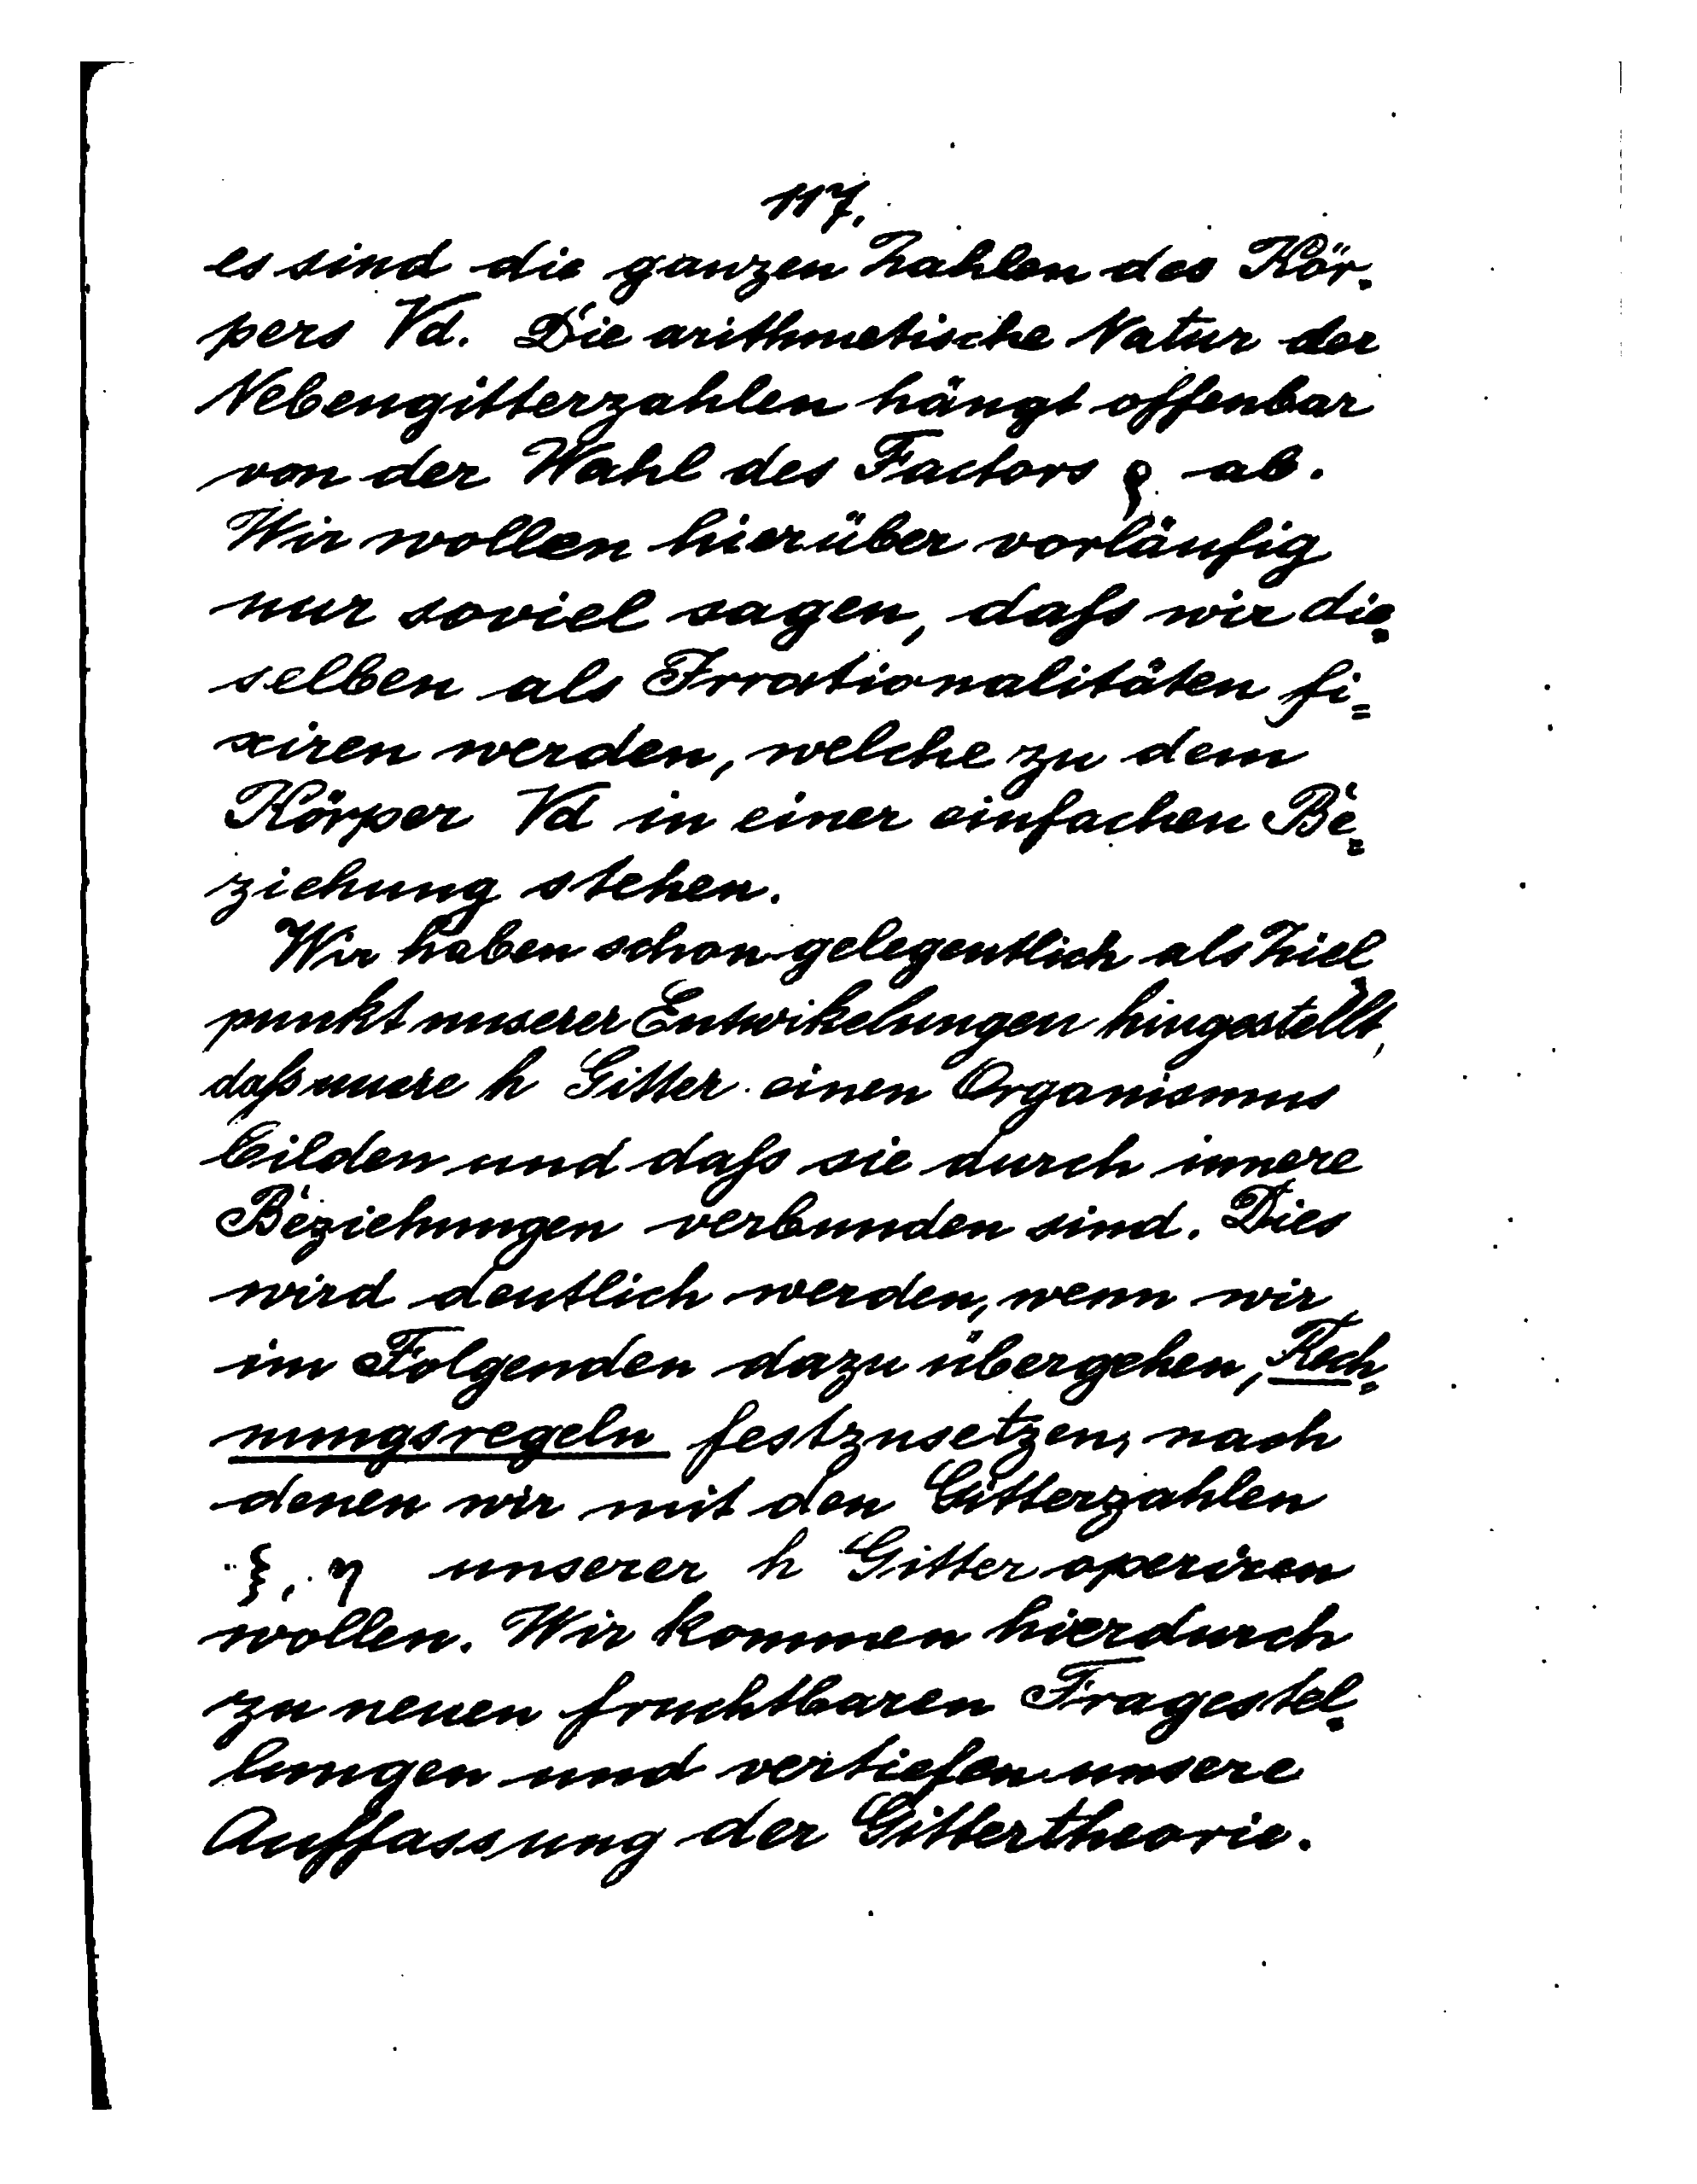 117.
es sind die ganzen Zahlen des Kör-
pers √d. Die arithmetische Natur der
Nebengitterzahlen hängt offenbar
von der Wahl des Factors ϱ ab.
Wir wollen hierüber vorläufig
nur soviel sagen, daſs wir die-
selben als Irrationalitäten fi=
xiren werden, welche zu dem
Körper √d in einer einfachen Be=
ziehung stehen.
Wir haben schon gelegentlich als Ziel
punkt unserer Entwikelungen hingestellt,
daſs unsere h Gitter einen Organismus
bilden und daſs sie durch innere
Beziehungen verbunden sind. Dies
wird deutlich werden, wenn wir
im Folgenden dazu übergehen, Rech=
nungsregeln festzusetzen, nach
denen wir mit den Gitterzahlen
ξ, η unserer h Gitter operiren
wollen. Wir kommen hierdurch
zu neuen fruchtbaren Fragestel-
lungen und vertiefen unsere
Auffassung der Gittertheorie.